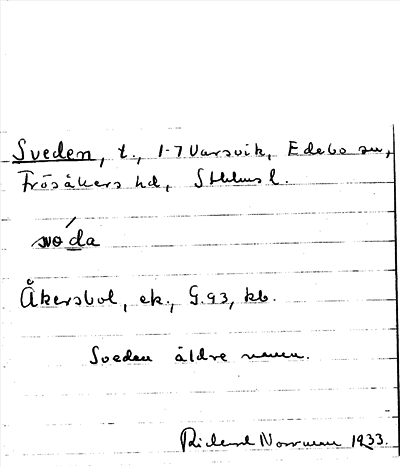 Sveden, t., 1-7 Varsvik, Edebo sn,
Frösåkers hd, Sthlms l.
svò́da
Åkersbol, ek., G.93, kb.
Sveden äldre namn.
Rickard Norrman 1933.